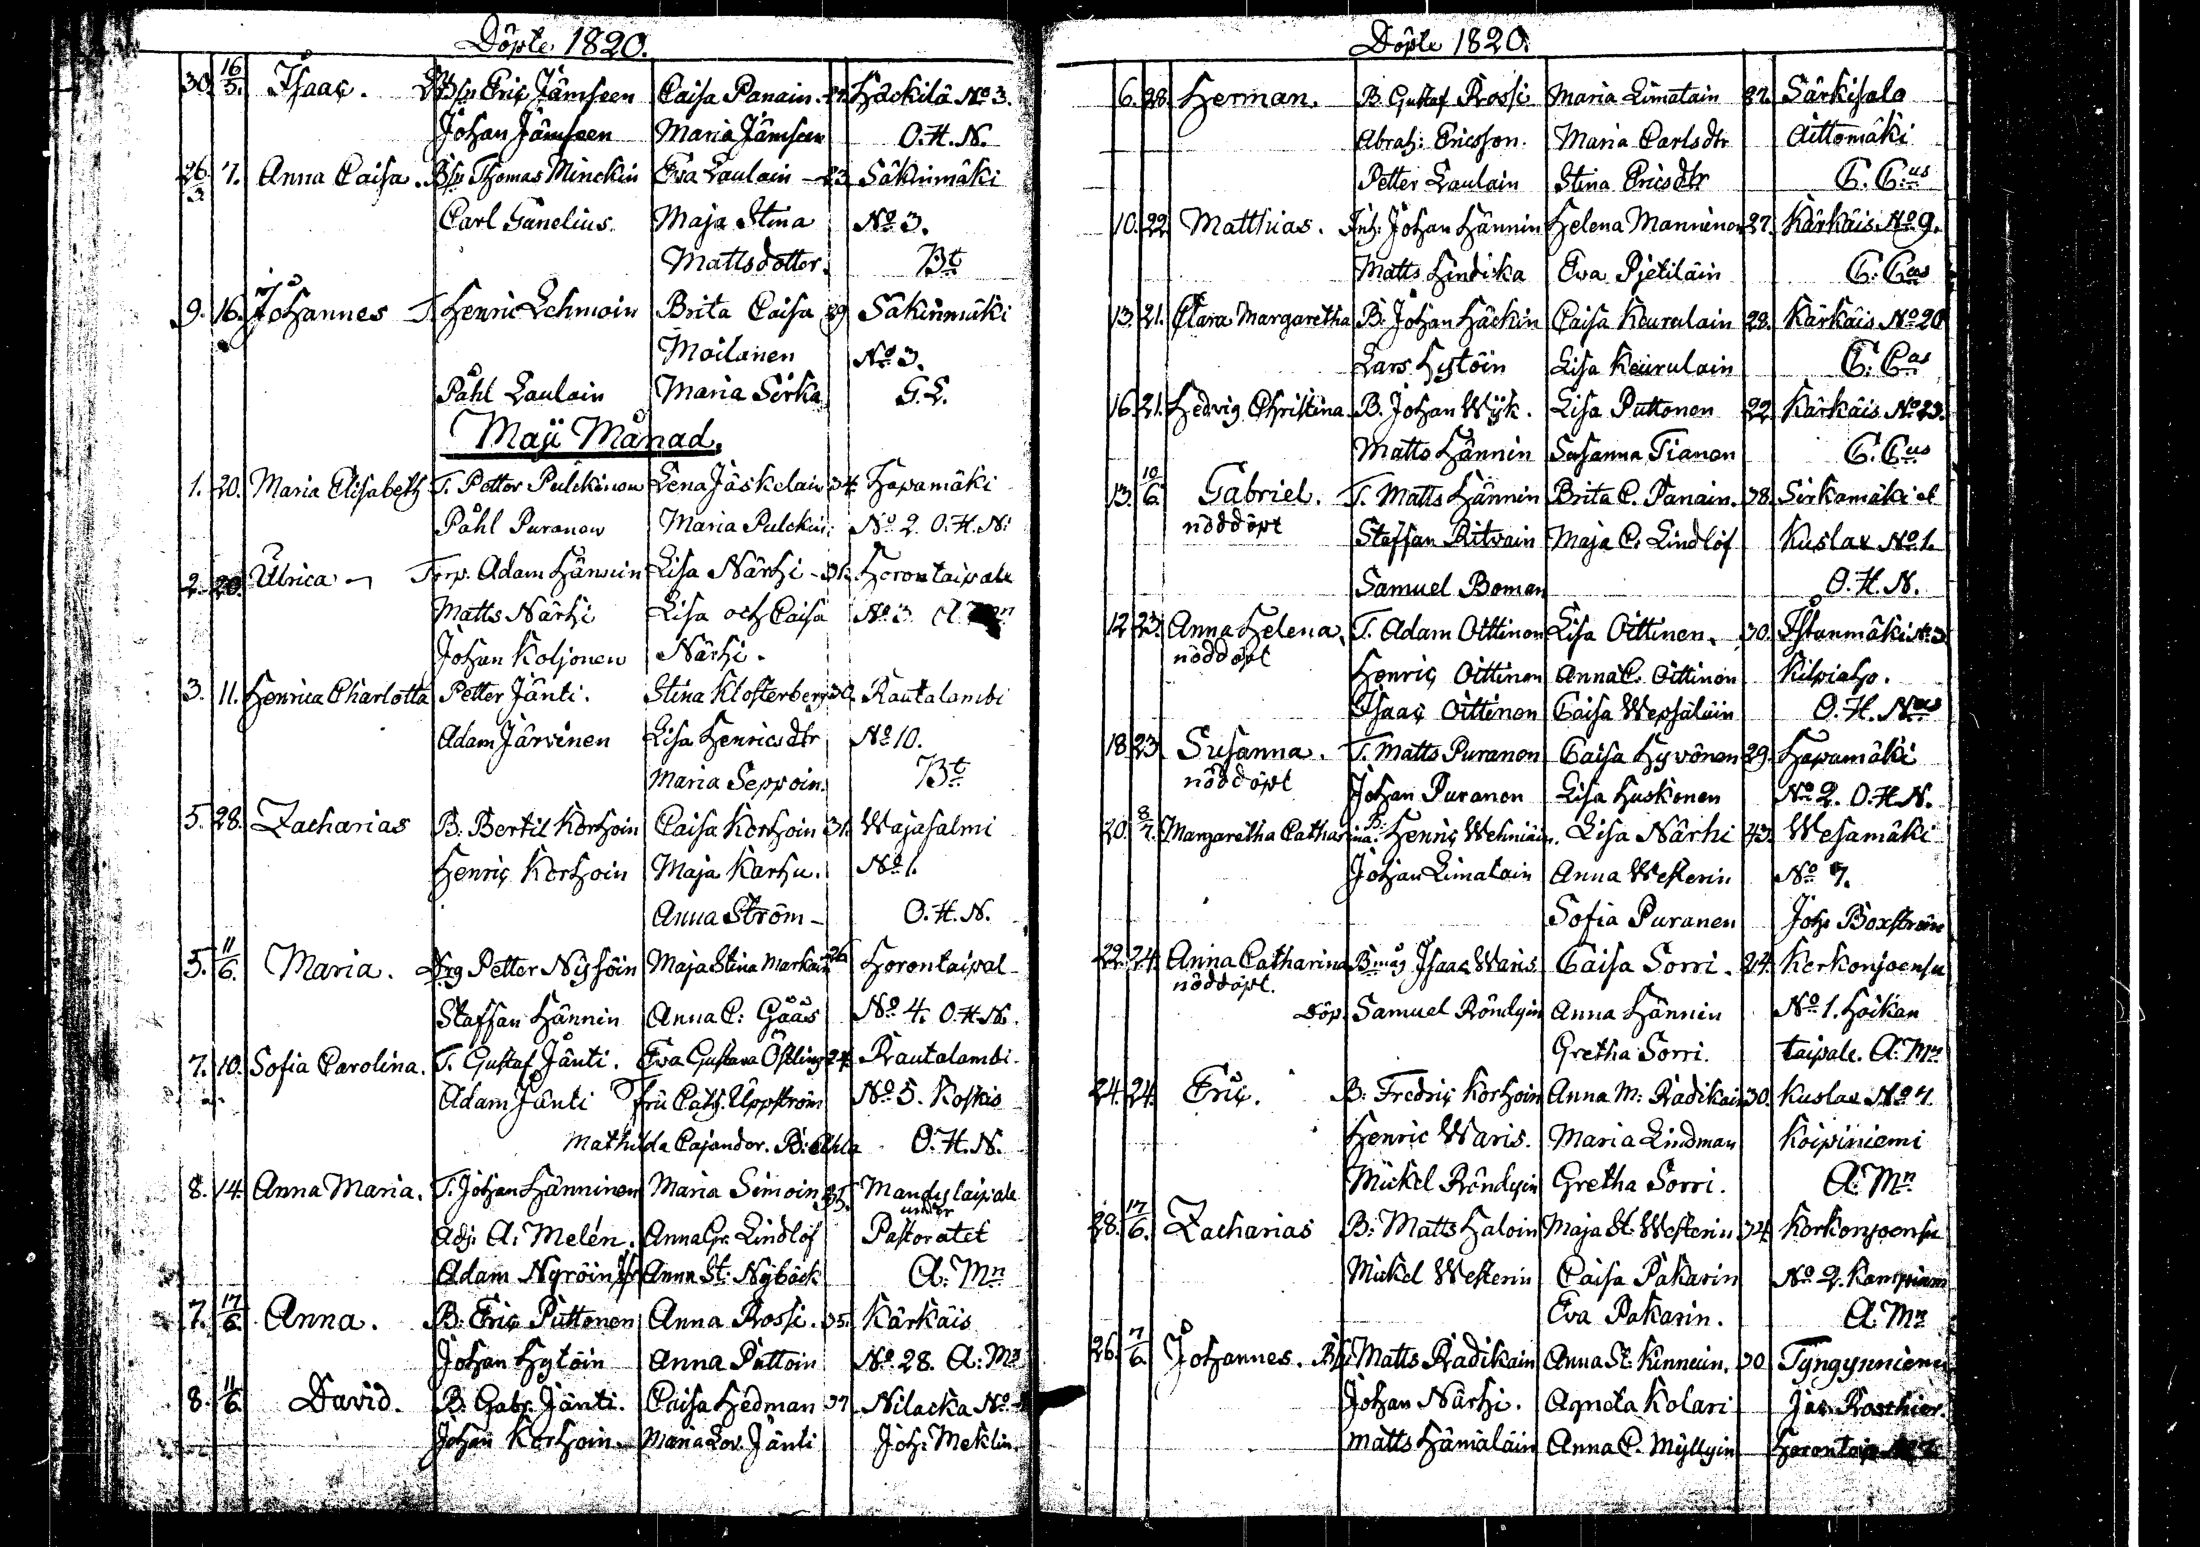 Döpte 1820.
30. 16/5. Isaac. Eric Jämseen Caisa Panain. 27. Häckilä No 3.
Johan Jämseen Maria Jämseen O. H. N.
26/3 7. Anna Caisa. Thomas Minckin Eva Laulain 23. Säkinmäki
Carl Ganelius. Maja Stina No 3.
Mattsdotter. Bt
9. 16. Johannes T. Henric Lehmoin Brita Caisa 39 Säkinmäki
Moilanen No 3.
Påhl Laulain Maria Sirka G. L.
Maji Månad.
1. 20. Maria Elisabeth T. Petter Pulckinen Lena Jäskelain 34. Hapamäki
Påhl Puranen Maria Pulckin: No 2. O. H. N:
2. 20. Ulrica Torp. Adam Hännin Lisa Närhi 31. Horontaipale
Matts Närhi Lisa och Caisa No 3. A.
Johan Koljonen Närhi.
3. 11. Henrica Charlotta Petter Jänti. Stina Klosterberg 30. Rautalambi
Adam Järvinen Lisa Henricsdtr No 10.
Maria Seppoin. Bt
5. 28. Zacharias B. Bertil Korhoin Caisa Korhoin 31. Wajasalmi
Henric Korhoin Maja Karhu. No 1.
Anna Ström O. H. N.
5. 11/6. Maria. Drg Petter Nissöin Maja Stina Markain 26 Horontaipal
Staffan Hännin Anna C: Gåås No 4. O. H. N.
7. 10. Sofia Carolina. T. Gustaf Jänti. Eva Gustava Östling 24. Rautalambi.
Adam Jänti fru Cath. Uppström No 5. Koskis
Mathilda Cajander. O. H. N.
8. 14. Anna Maria. T. Johan Hänninen Maria Simoin 35. Mandystaipale
under
Adj. A. Melén. Anna Gr. Lindlöf Pastoratet
Adam Nyröin Anna St: Nybäck A. Mn
7. 17/6. Anna. B. Eric Puttonen Anna Rossi. 35. Kärkäis
Johan Hytöin Anna Puttoin No 28. A: Mn
8. 11/6. David. B. Gabr. Jänti. Caisa Hedman 37 Nilacka No
Johan Korhoin Maria Lov. Jänti Joh: Meklin.
Döpte 1820.
6. 28. Herman. B. Gustaf Rossi Maria Limatain 37. Särkisalo
Abrah: Ericsson. Maria Carlsdtr Aittomäki
Petter Laulain Stina Ericsdtr C. C:us
10. 22. Matthias. Inh: Johan Hännin Helena Manninen 27. Kärkäis No 9.
Matts Lindika Eva Pjetiläin C. C:us
13. 21. Clara Margaretha B. Johan Häckin Caisa Keurulain 28. Kärkäis No 20
Lars Hytöin Lisa Keurulain C. C:us
16. 21. Hedvig Christina. B. Johan Wijk. Lisa Puttonen 22. Kärkäis No 23.
Matts Hännin Susanna Tianen C. C:us
13. 10/6. Gabriel. T. Matts Hännin Brita C. Panain. 38. Sirkamäki el
nöddöpt Staffan Ritvain Maja C. Lindlöf Kuslax No 1.
Samuel Boman O. H. N.
12. 23. Anna Helena, T. Adam Oittinen Lisa Oittinen. 30. Istunmäki No 3
nöddöpt
Henric Oittinen Anna C. Oittinen Kilpiaho.
Isaac Oittinen Caisa Wepsäläin O. H. N
18. 23. Susanna. T. Matts Puranen Caisa Hyvönen 29. Hapamäki
nöddöpt Johan Puranen Lisa Huskonen No 2. O. H. N.
20. 8/7. Margaretha Catharina. B: Henric Wehniäin. Lisa Närhi 43. Wesamäki
Johan Limatain Anna Westerin No 7.
Sofia Puranen Joh: Boxström
22. 24. Anna Catharina Bmåg Isaac Waris Caisa Sorri. 24. Kerkonjoensu
nöddöpt.
Döp. Samuel Röndyin Anna Hännin No 1. Hoikan
Gretha Sorri. taipale. A. Mn
24. 24. Eric. B. Fredric Korhoin Anna M: Radikain 30. Kuslax No 7.
Henric Waris. Maria Lindman Koipiniemi
Mickel Röndyin Gretha Sorri. A. Mn
28. 17/6. Zacharias B: Matts Haloin Maja St. Westerin 34 Korkonjoensu
Mickel Westerin Caisa Pakarin No 2.
Eva Pakarin. A. Mn
26. 7/6. Johannes. Matts Radikain Anna St: Kinnuin. 30 Tyngynniemi
Johan Närhi. Agneta Kolari Jac. Rosthier.
Matts Hämäläin Anna C. Myllyin